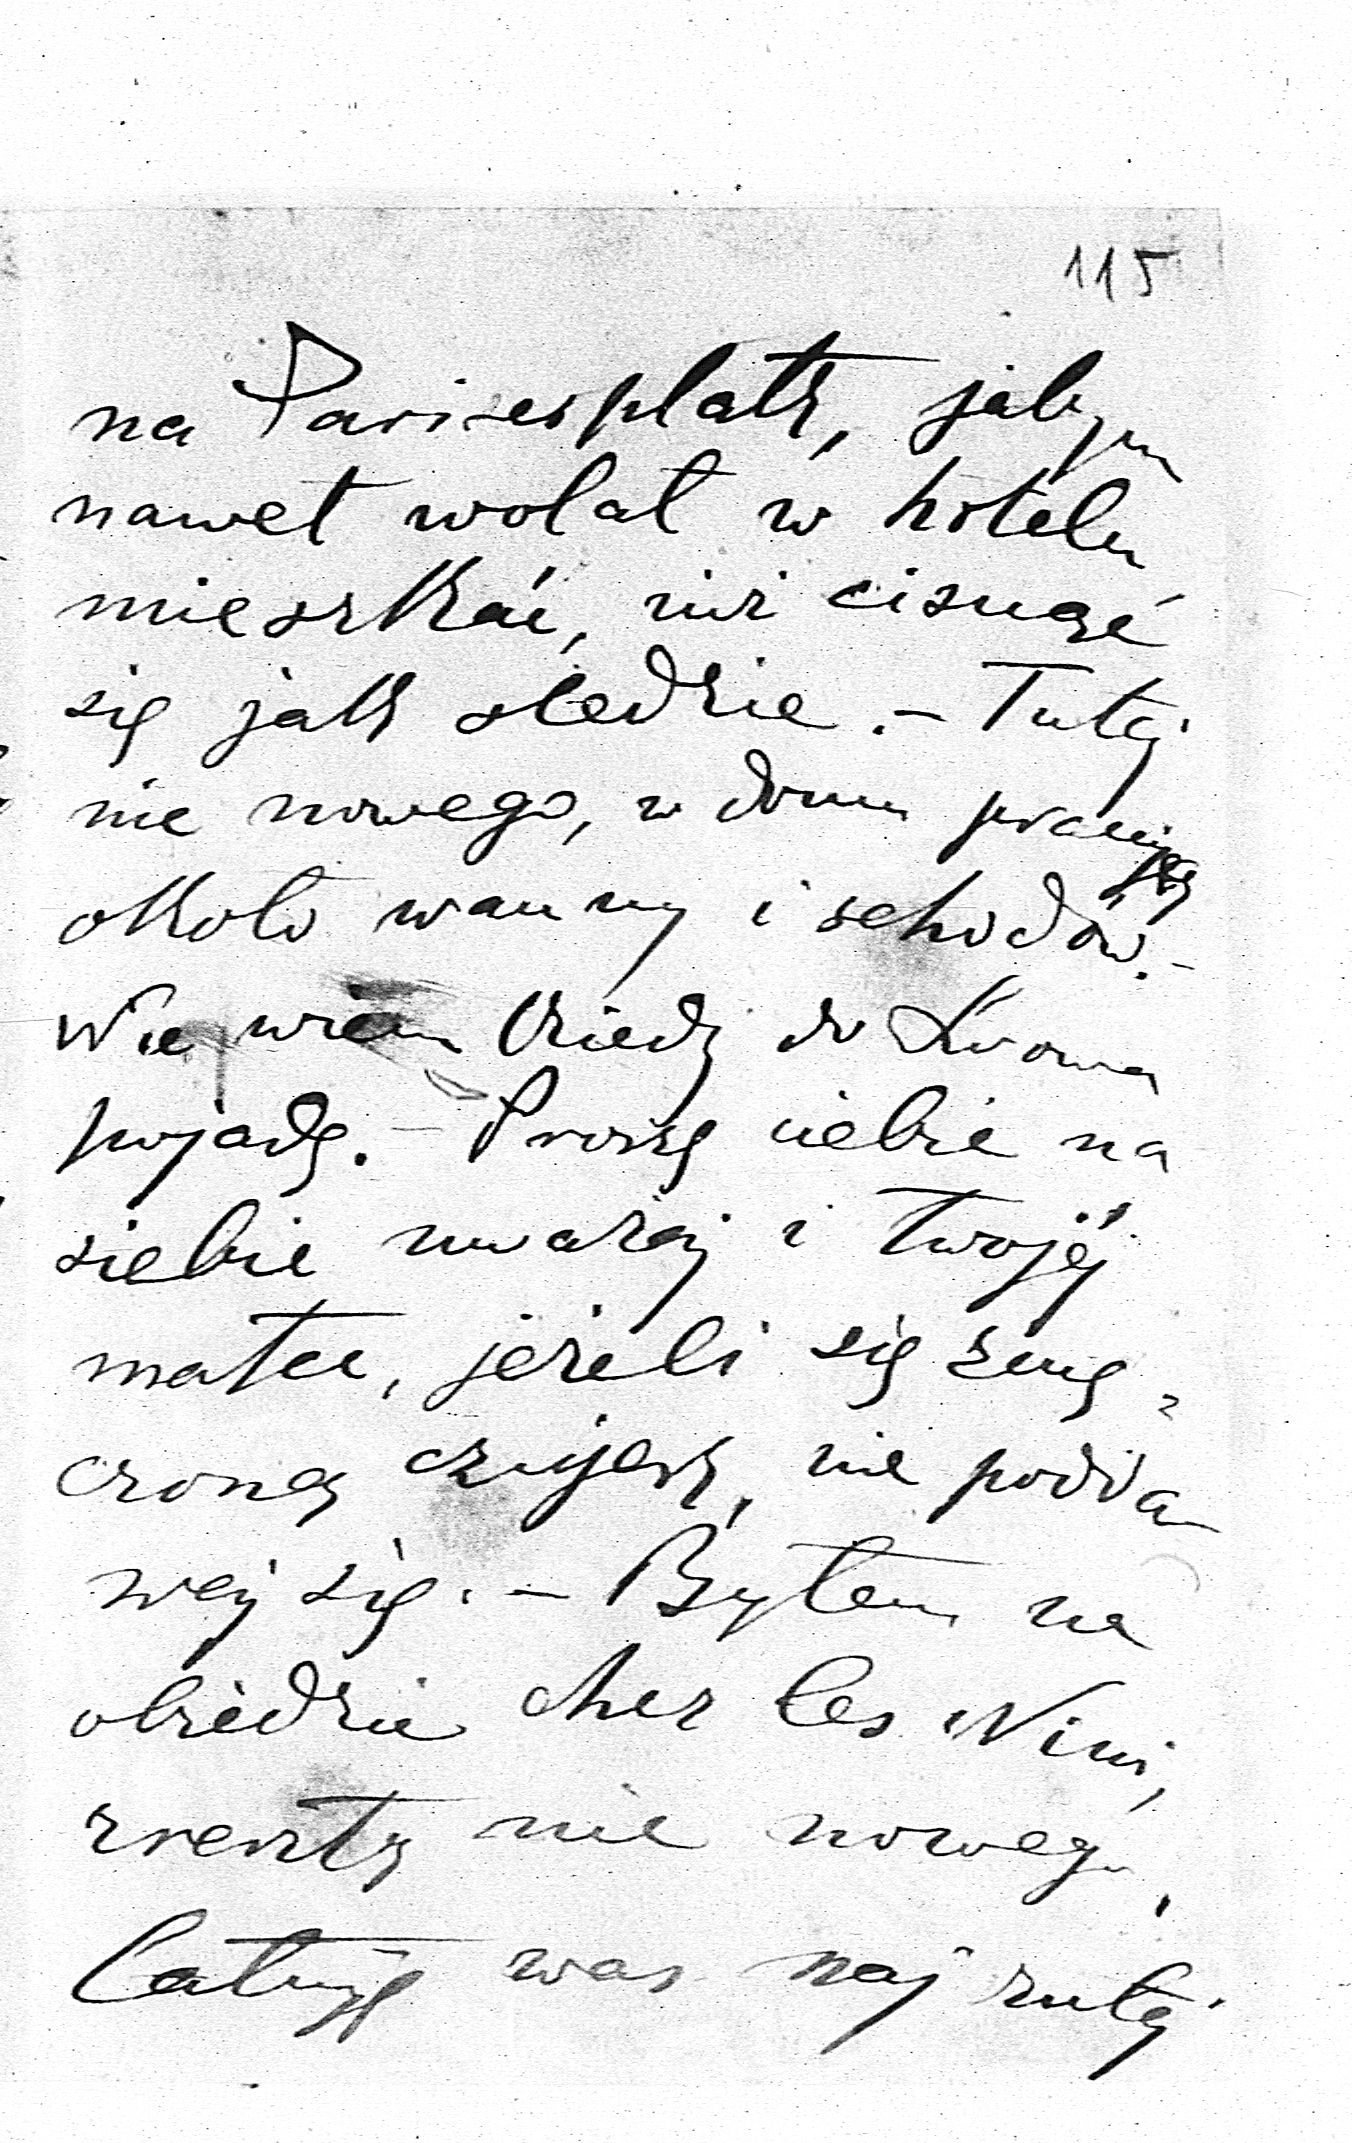 115
na Pariserplatz, jabym
nawet wolał w hotelu
mieszkać, niż cisnąć
się jak śledzie. - Tutej
nic nowego, w domu pracują
około wanny i schodów. -
Nie wiem kiedy do Lwowa
pojadę. - Proszę ciebie na
siebie uważej i twojéj
matce, jeżeli się zmę-
czoną czujesz, nie podda
wej się. - Byłem na
obiedzie chez les Nini,
zresztą nic nowego,
Całuję was najczulej